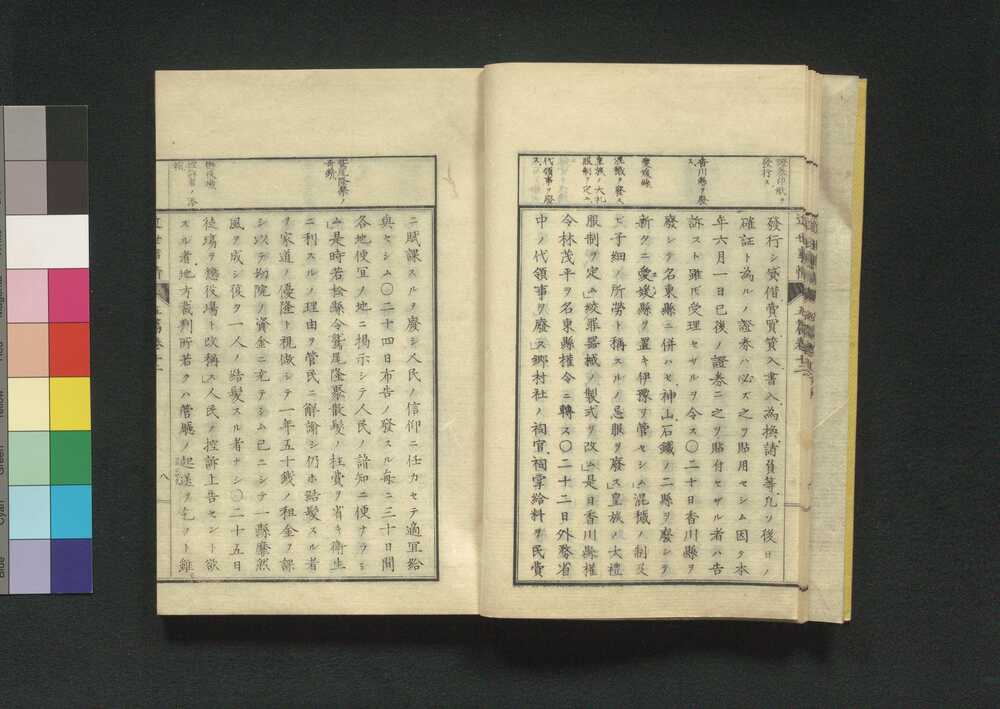 證券印紙ヲ
發行ス
香川縣ヲ廢
ス
愛媛縣
混穢ヲ廢ス
皇族ノ大礼
服制ヲ定ム
代領事ヲ廢
ス
發行シ貸借賣買質入書入為換請負等凡ソ後日ノ
確証ト為ルノ證券ハ必ズ之ヲ貼用セシム因タ本
年六月一日已後ノ證券ニ之ヲ貼付セザル者ハ告
訴スト雖𪜈受理セザルヲ令ス〇二十日香川縣ヲ
廢シテ名東縣ニ併ハセ神山石鐵ノ二縣ヲ廢シテ
新タニ愛媛縣ヲ置キ伊豫ヲ管セシム」混穢ノ制及
ビ子細ノ所勞ト稱スルノ忌服ヲ廢ス」皇族ノ大禮
服制ヲ定ム」絞罪器械ノ製式ヲ改ム」是日香川縣權
令林茂平ヲ名東縣權令ニ轉ス〇二十二日外務省
中ノ代領事ヲ廢ス」郷村社ノ祠官祠掌給料ヲ民費
鷲尾隆聚ノ
ニ賦課スルヲ廢シ人民ノ信仰ニ任カセテ適宜給
與セシム〇二十四日布告ノ發スル毎ニ三十日間
各地便宜ノ地ニ掲示シテ人民ノ諳知ニ便ナラシ
ム」是時若松縣令鷲尾隆聚散髮ノ枉費ヲ省キ衛生
ニ利スルノ理由ヲ管民ニ解諭シ仍ホ結髮スル者
ヲ家道ノ優隆ト視做シテ一年五十錢ノ租金ヲ課
シ以テ病院ノ資金ニ充テシム已ニシテ一縣靡然
風ヲ成シ復タ一人ノ結髮スル者ナシ〇二十五日
徒場ヲ懲役場ト改稱ス」人民ノ控訴上告セント欲
スル者地方裁判所若クハ管廳ノ起送ヲ乞フト雖
八